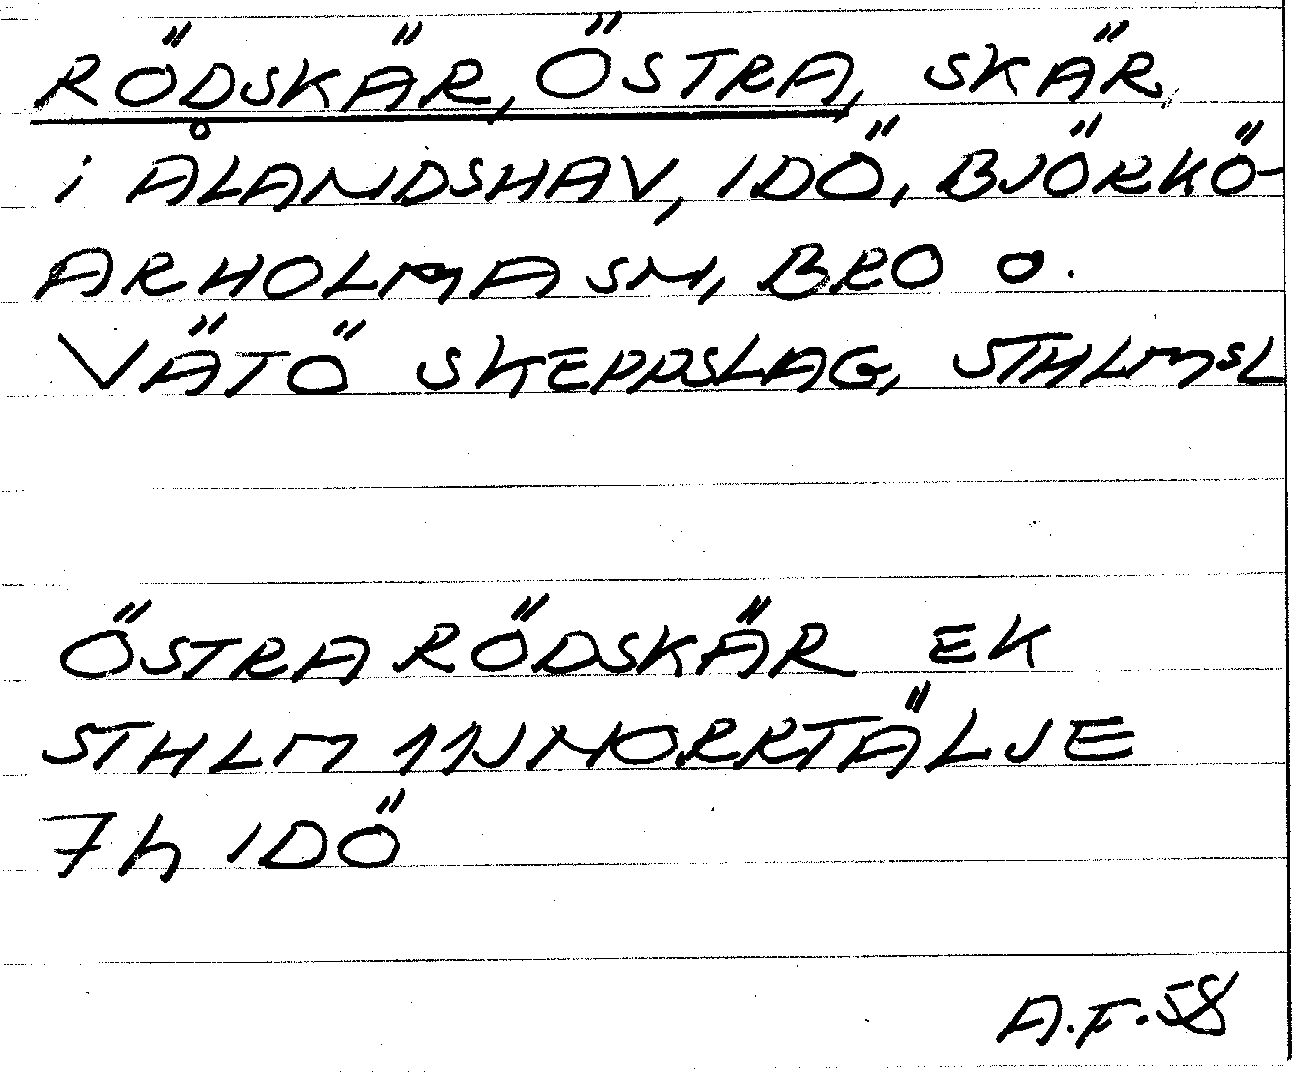 RÖDSKÄR, ÖSTRA, SKÄR
i ÅLANDSHAV, IDÖ, BJÖRKÖ-
ARHOLMA SN, BRO O.
VÄTÖ SKEPPSLAG, STHLMSL
ÖSTRA RÖDSKÄR EK
STHLM 11J NORRTÄLJE
7h IDÖ
A.F.58